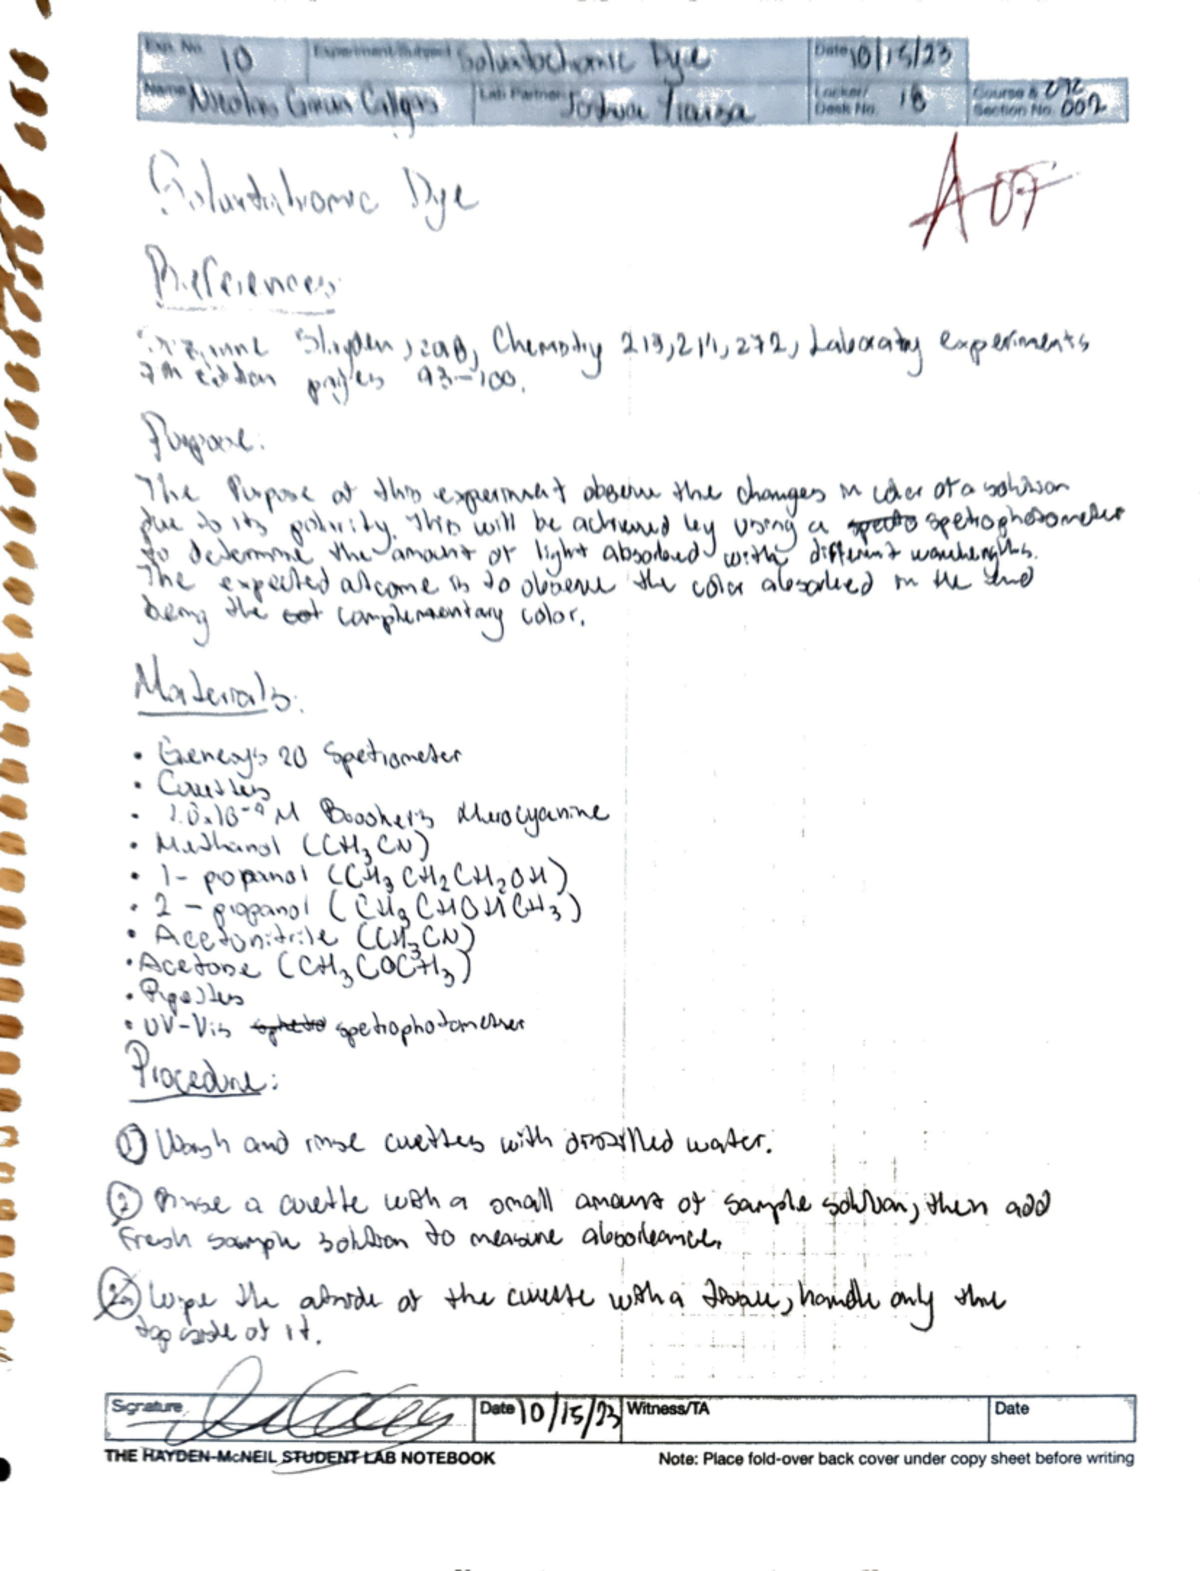 Exp. No. 10 Experiment/Subject Solvatochromic Dye Date 10/15/23
Name Nicolas Lab Partner Joshua Locker/Desk No. 18 Course & Section No. 272 002
Solvatochromic Dye
References:
Suzanne Slayden, Chemistry 213, 214, 272, Laboratory experiments
7th edition pages 93-100.
Purpose:
The Purpose of this experiment observe the changes in color of a solution
due to its polarity. This will be achieved by using a spectro spetrophotometer
to determine the amount of light absorbed with different wavelengths.
The expected outcome is to observe the color absorbed in the end
being the complementary color.
Materials:
• Genesys 20 Spetrometer
• Cuvettes
• M Brooker's Merocyanine
• Methanol (CH3CN)
• 1-propanol (CH3CH2CH2OH)
• 2-propanol (CH3CHOHCH3)
• Acetonitrile (CH3CN)
• Acetone (CH3COCH3)
• Pipettes
• UV-Vis spetrophotometer
Procedure:
① Wash and rinse cuvettes with distilled water.
② Rinse a cuvette with a small amount of sample solution, then add
fresh sample solution to measure absorbance.
Wipe the outside of the cuvette with a tissue, handle only the
top side of it.
Signature Date 10/15/23 Witness/TA Date
THE HAYDEN-McNEIL STUDENT LAB NOTEBOOK Note: Place fold-over back cover under copy sheet before writing